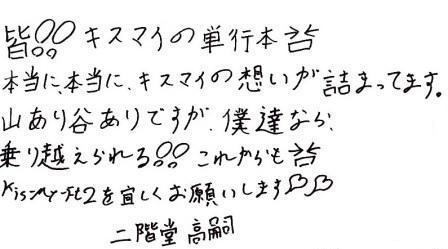 皆!! キスマイの単行本
本当に、本当に、キスマイの想いが詰まってます。
山あり谷ありですが、僕達なら、
乗り越えられる!! これからも
Kis-My-Ft2を宜しくお願いします♡♡
二階堂 高嗣